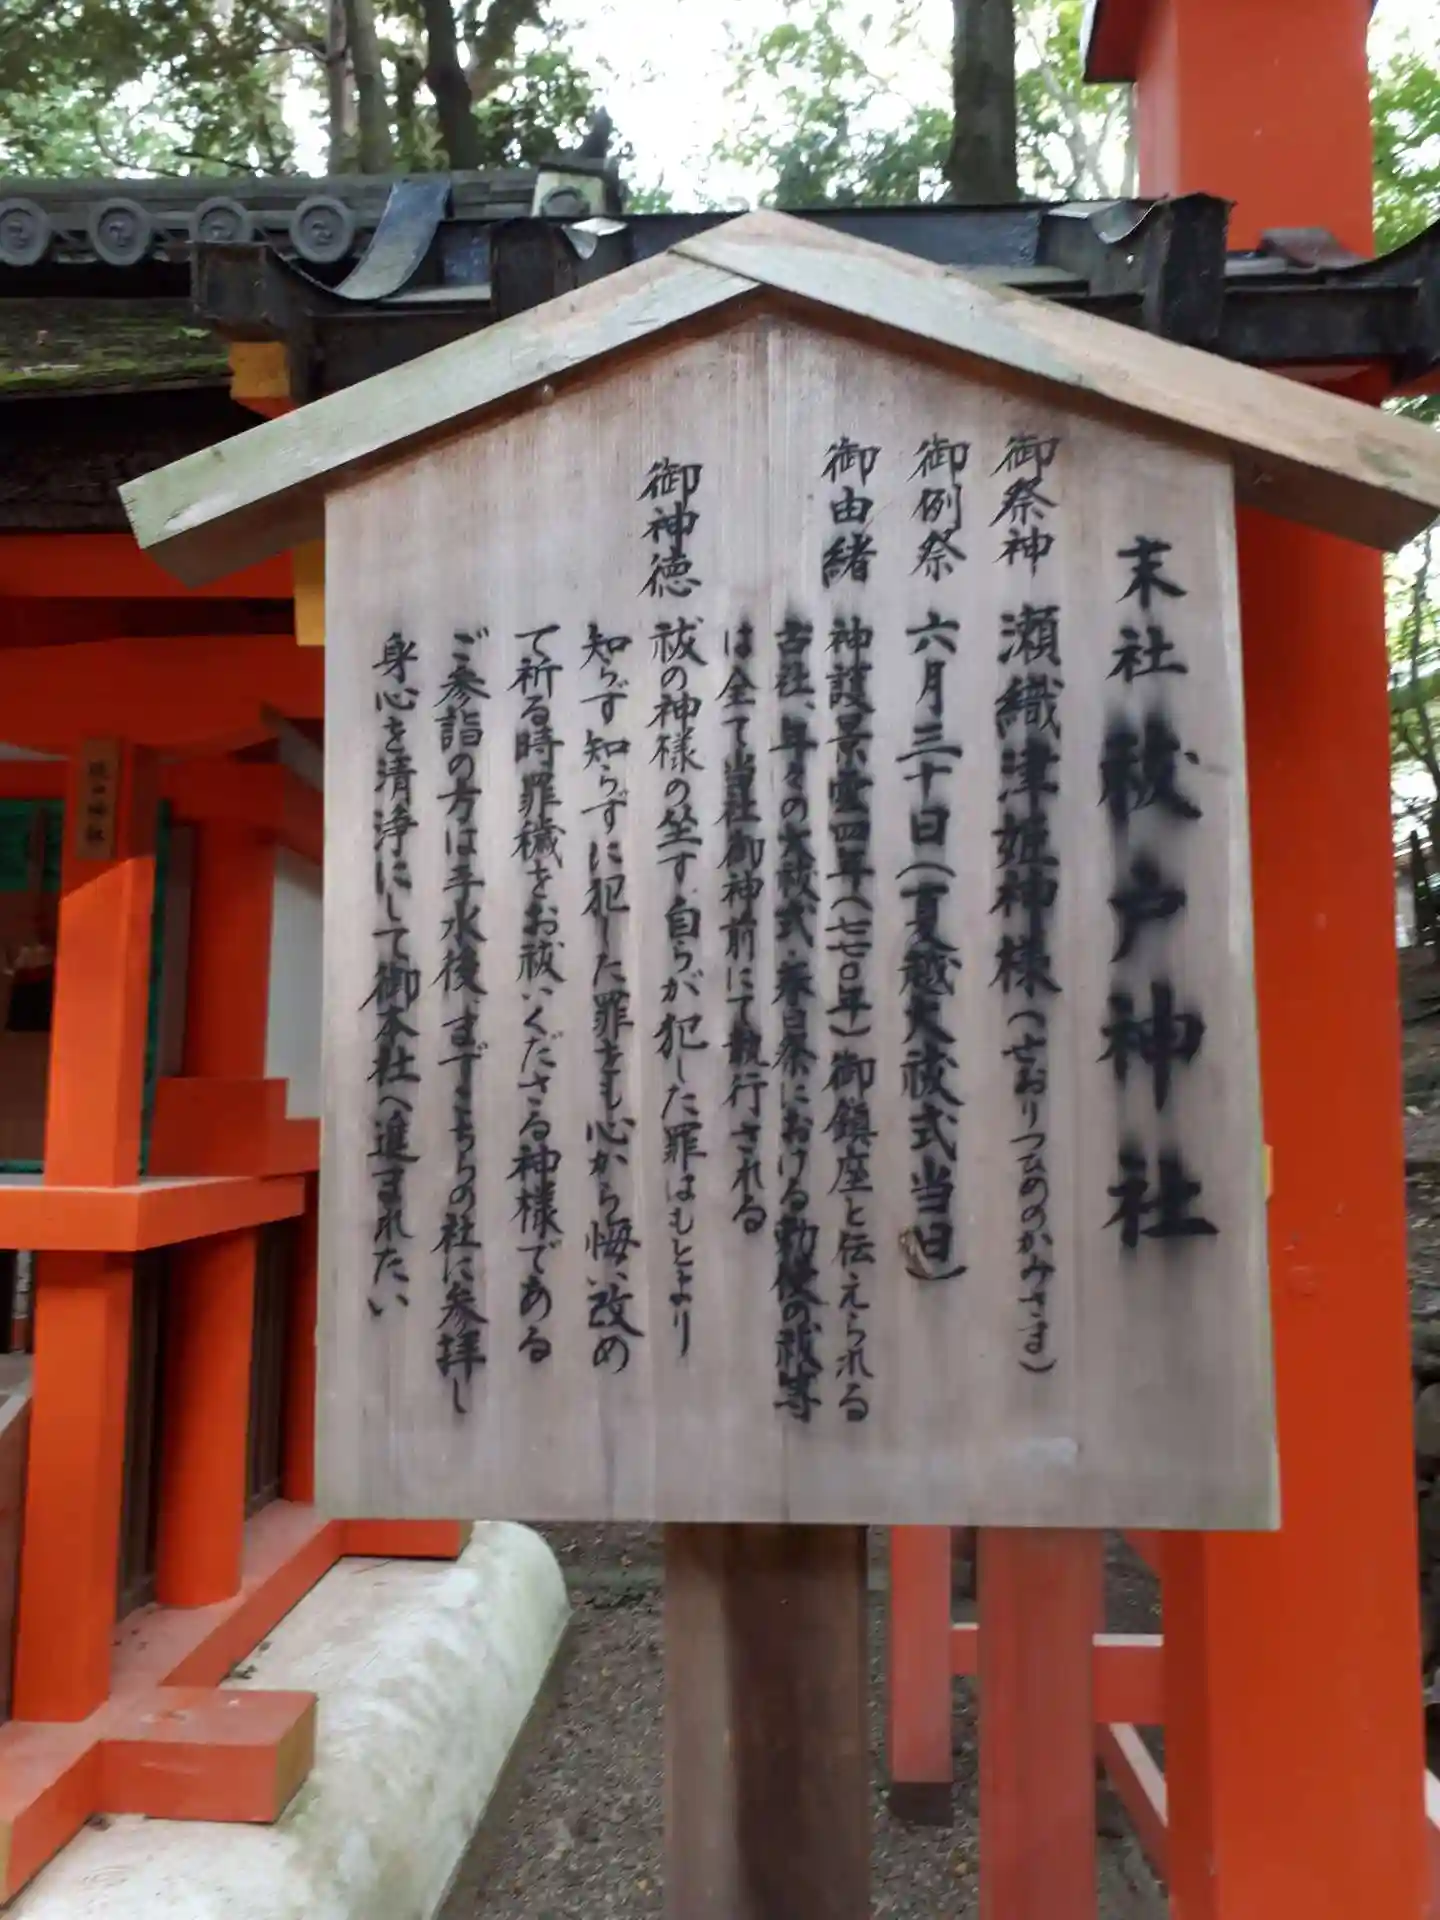 末社 祓戸神社
御祭神 瀬織津姫神様(せおりつひめのかみさま)
御例祭 六月三十日(夏越大祓式当日)
御由緒 神護景雲四年(七七〇年)御鎮座と伝えられる
古社、年々の大祓式・春日祭における勅使の祓等
は全て当社御神前にて執行される
御神徳 祓の神様の坐す、自らが犯した罪はもとより
知らず知らずに犯した罪をも心から悔い改め
て祈る時罪穢をお祓いくださる神様である
ご参詣の方は手水後、まずこちらの社に参拝し
身心を清浄にして御本社へ進まれたい
祓戸神社